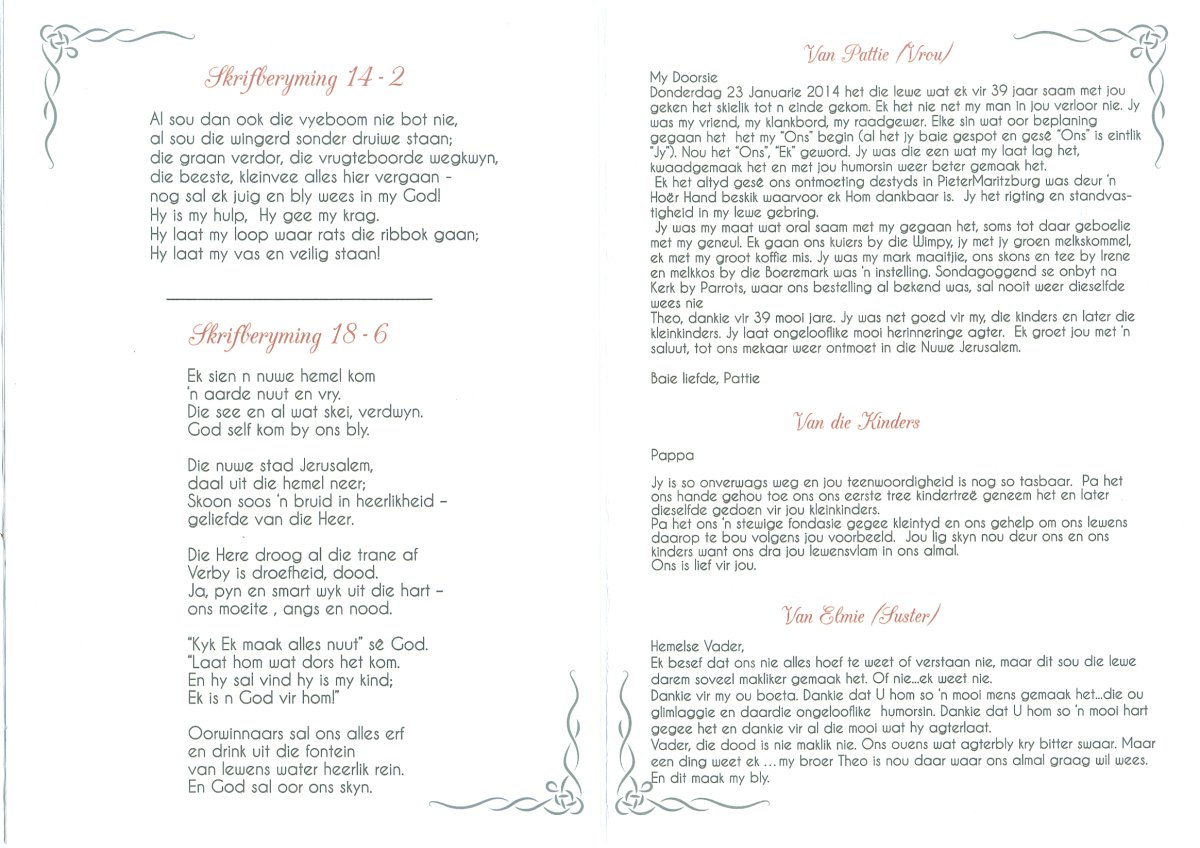 Skrifberyming 14 - 2
Al sou dan ook die vyeboom nie bot nie,
al sou die wingerd sonder druiwe staan;
die graan verdor, die vrugteboorde wegkwyn,
die beeste, kleinvee alles hier vergaan -
nog sal ek juig en bly wees in my God!
Hy is my hulp, Hy gee my krag.
Hy laat my loop waar rats die ribbok gaan;
Hy laat my vas en veilig staan!
Skrifberyming 18 - 6
Ek sien n nuwe hemel kom
'n aarde nuut en vry.
Die see en al wat skei, verdwyn.
God self kom by ons bly.
Die nuwe stad Jerusalem,
daal uit die hemel neer;
Skoon soos 'n bruid in heerlikheid –
geliefde van die Heer.
Die Here droog al die trane af
Verby is droefheid, dood.
Ja, pyn en smart wyk uit die hart –
ons moeite , angs en nood.
"Kyk Ek maak alles nuut" sê God.
"Laat hom wat dors het kom.
En hy sal vind hy is my kind;
Ek is n God vir hom!"
Oorwinnaars sal ons alles erf
en drink uit die fontein
van lewens water heerlik rein.
En God sal oor ons skyn.
Van Pattie (Vrou)
My Doorsie
Donderdag 23 Januarie 2014 het die lewe wat ek vir 39 jaar saam met jou
geken het skielik tot n einde gekom. Ek het nie net my man in jou verloor nie. Jy
was my vriend, my klankbord, my raadgewer. Elke sin wat oor beplaning
gegaan het het my "Ons" begin (al het jy baie gespot en gesê "Ons" is eintlik
"Jy"). Nou het "Ons", "Ek" geword. Jy was die een wat my laat lag het,
kwaadgemaak het en met jou humorsin weer beter gemaak het.
Ek het altyd gesê ons ontmoeting destyds in PieterMaritzburg was deur 'n
Hoër Hand beskik waarvoor ek Hom dankbaar is. Jy het rigting en standvas-
tigheid in my lewe gebring.
Jy was my maat wat oral saam met my gegaan het, soms tot daar geboelie
met my geneul. Ek gaan ons kuiers by die Wimpy, jy met jy groen melkskommel,
ek met my groot koffie mis. Jy was my mark maaitjie, ons skons en tee by Irene
en melkkos by die Boeremark was 'n instelling. Sondagoggend se onbyt na
Kerk by Parrots, waar ons bestelling al bekend was, sal nooit weer dieselfde
wees nie
Theo, dankie vir 39 mooi jare. Jy was net goed vir my, die kinders en later die
kleinkinders. Jy laat ongelooflike mooi herinneringe agter. Ek groet jou met 'n
saluut, tot ons mekaar weer ontmoet in die Nuwe Jerusalem.
Baie liefde, Pattie
Van die Kinders
Pappa
Jy is so onverwags weg en jou teenwoordigheid is nog so tasbaar. Pa het
ons hande gehou toe ons ons eerste tree kindertreë geneem het en later
dieselfde gedoen vir jou kleinkinders.
Pa het ons 'n stewige fondasie gegee kleintyd en ons gehelp om ons lewens
daarop te bou volgens jou voorbeeld. Jou lig skyn nou deur ons en ons
kinders want ons dra jou lewensvlam in ons almal.
Ons is lief vir jou.
Van Elmie (Suster)
Hemelse Vader,
Ek besef dat ons nie alles hoef te weet of verstaan nie, maar dit sou die lewe
darem soveel makliker gemaak het. Of nie...ek weet nie.
Dankie vir my ou boeta. Dankie dat U hom so 'n mooi mens gemaak het...die ou
glimlaggie en daardie ongelooflike humorsin. Dankie dat U hom so 'n mooi hart
gegee het en dankie vir al die mooi wat hy agterlaat.
Vader, die dood is nie maklik nie. Ons ouens wat agterbly kry bitter swaar. Maar
een ding weet ek ...my broer Theo is nou daar waar ons almal graag wil wees.
En dit maak my bly.